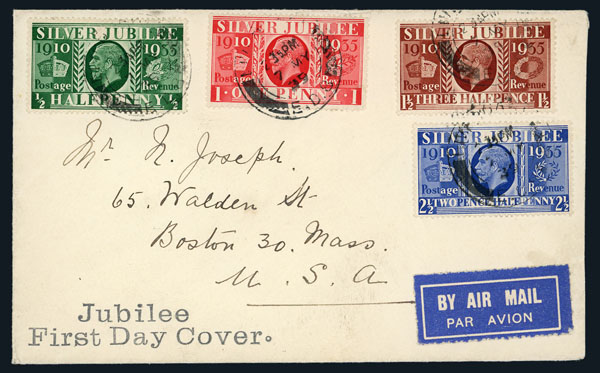 SILVER JUBILEE
1910 1935
Postage Revenue
½ HALFPENNY ½
SILVER JUBILEE
1910 1935
Postage Revenue
1 · ONE PENNY · 1
SILVER JUBILEE
1910 1935
Postage Revenue
1½ THREE HALFPENCE 1½
SILVER JUBILEE
1910 1935
Postage Revenue
2½ TWO PENCE HALFPENNY 2½
Mr N. Joseph.
65. Walden St
Boston 30. Mass.
U. S. A
BY AIR MAIL
PAR AVION
Jubilee
First Day Cover.